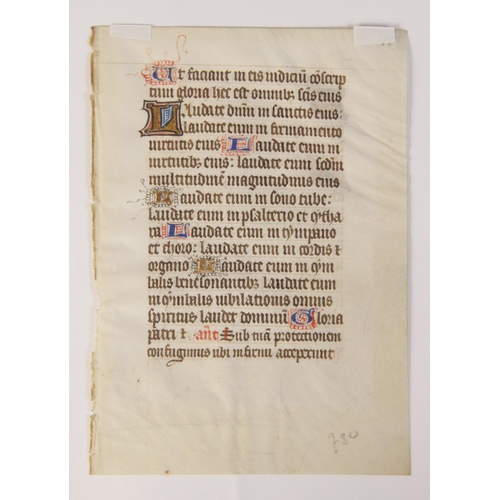 Ut faciant in eis iudiciū cōscrip
tum gloria hec est omnibꝫ scīs eius
Laudate dnm̄ in sanctis eius:
laudate eum in firmamento
uirtutis eius Laudate eum in
uirtutibꝫ eius: laudate eum scdm̄
multitudinē magnitudinis eius
Laudate eum in sono tube:
laudate eum in psalterio et cytha
ra Laudate eum in tympano
et choro: laudate eum in cordis ⁊
organo Laudate eum in cym
balis bene sonantibꝫ laudate eum
in cymbalis iubilationis omnis
spiritus laudet dominū Gloria
patri ⁊ añe Sub tuā protectionem
confugimus ubi infirmi acceperunt
780